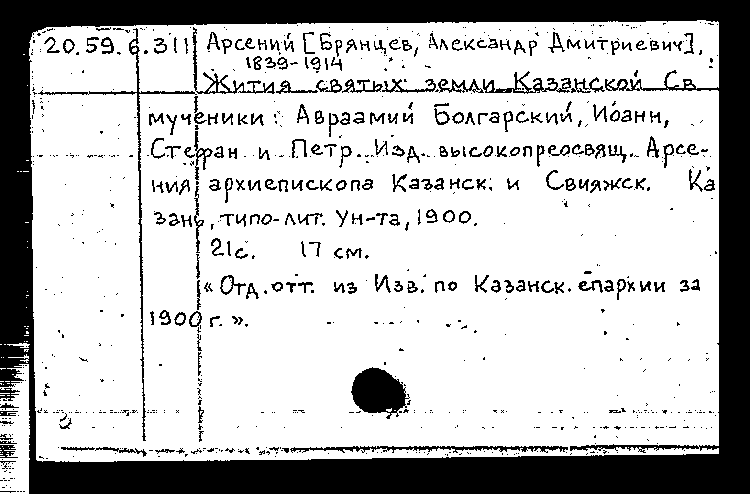 20.59.6.311 Арсений [Брянцев, Александр Дмитриевич],
1839-1914
Жития святых земли Казанской Св.
мученики: Авраамий Болгарский, Иоанн,
Стефан и Петр. Изд. высокопреосвящ. Арсе-
ния архиепископа Казанск. и Свияжск. Ка
зань, типо-лит. Ун-та, 1900.
21с. 17 см.
«Отд. отт. из Изв. по Казанск. епархии за
1900 г.».